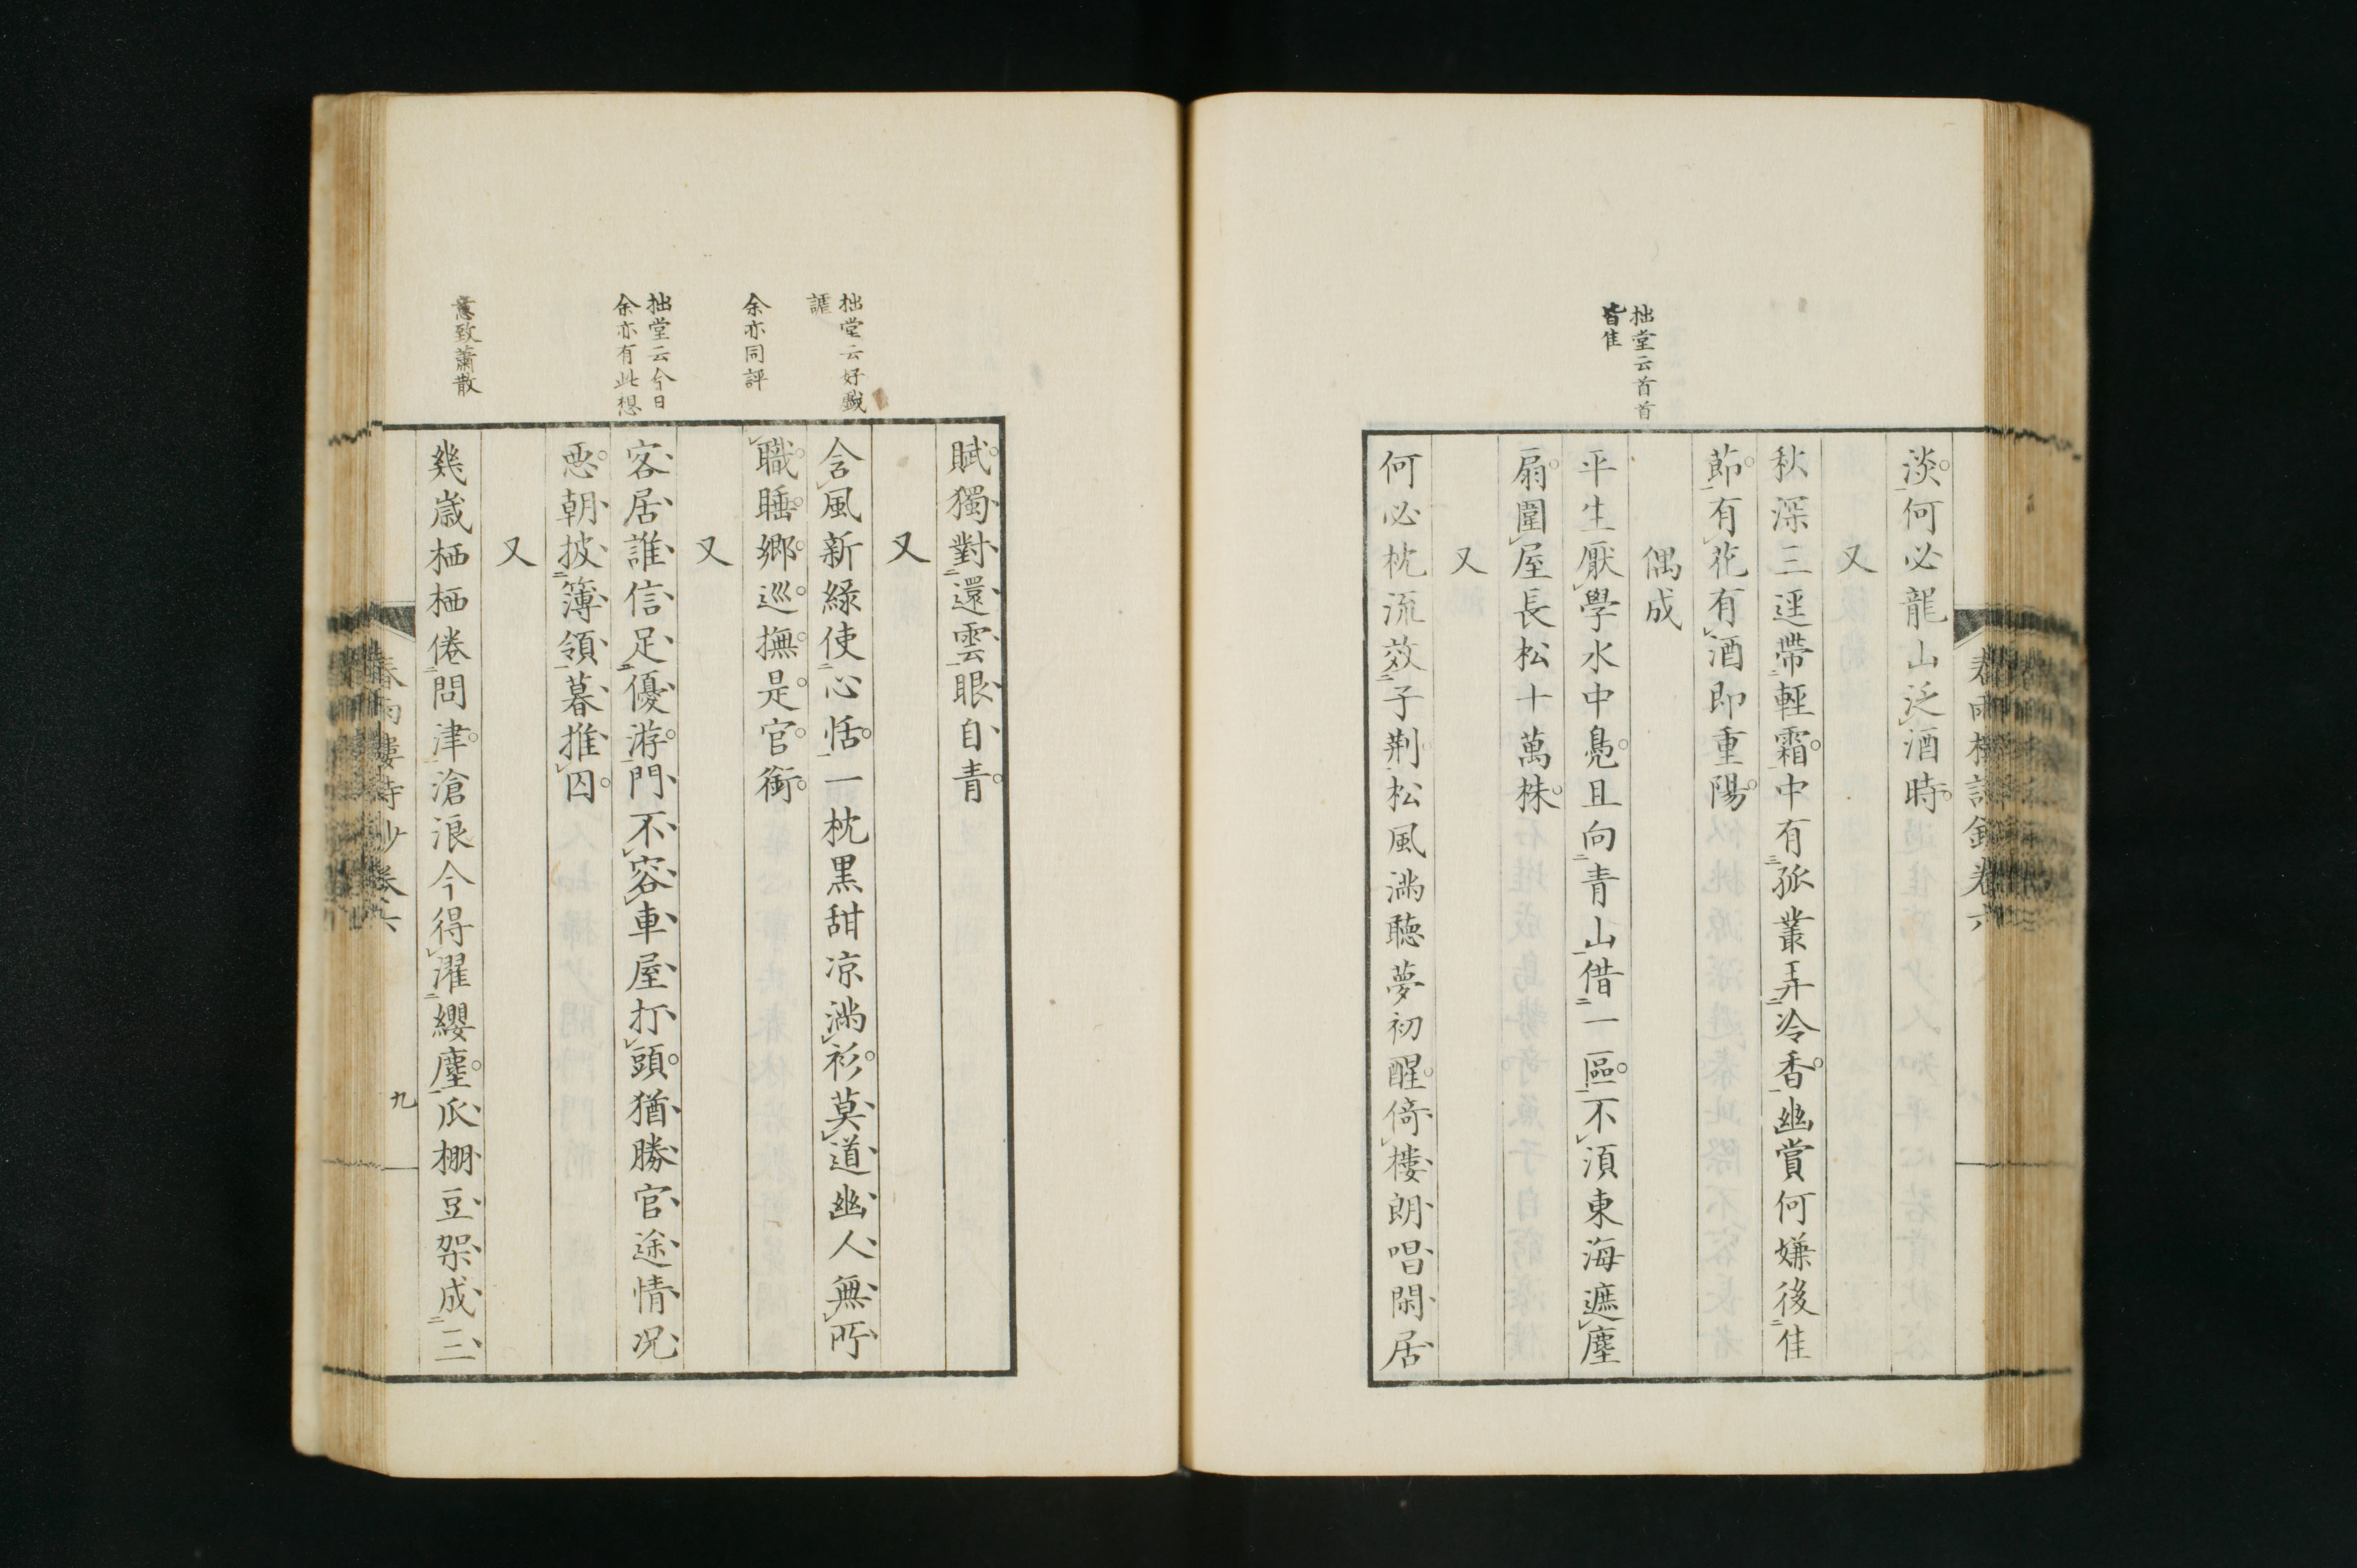 淡何必龍山泛酒時
又
秋深三逕帶輕霜中有孤叢弄冷香幽賞何嫌後佳
節有花有酒即重陽
偶成
拙堂云首首
皆佳
平生厭學水中鳧且向青山借一區不須東海遮塵
扇圍屋長松十萬株
又
何必枕流效子荊松風滿聽夢初醒倚樓朗唱閑居
賦獨對還雲眼自青
又
拙堂云好戲
謔
含風新綠使心恬一枕黒甜凉滿衫莫道幽人無所
余亦同評
職睡鄉巡撫是官銜
又
拙堂云今日
余亦有此想
客居誰信足優游門不容車屋打頭猶勝官途情况
惡朝披簿領暮推囚
又
意致蕭散
幾歲栖栖倦問津滄浪今得濯纓塵瓜棚豆架成三
春雨樓詩鈔卷六
九